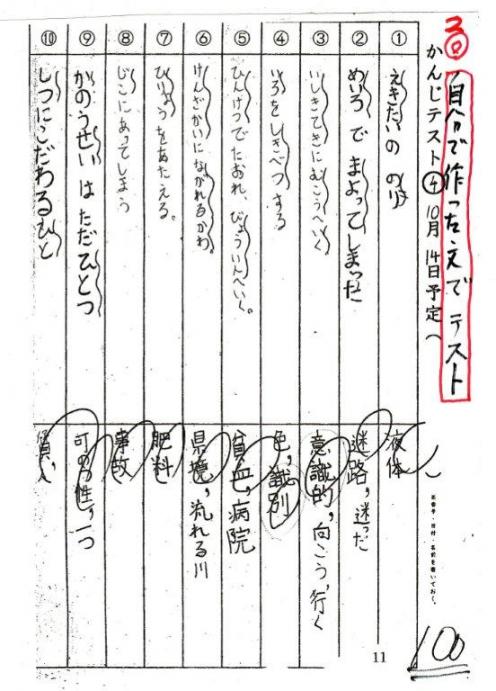 2回 自分で作った文でテスト
かんじテスト④ 10月14日予定(
① えきたいの のり
液体
② めいろで まよってしまった
迷路,迷った
③ いしきてきにむこうへいく
意識的,向こう,行く
④ いろをしきべつする
色,識別
⑤ ひんけつでたおれ、びょういんへいく。
貧血,病院
⑥ けんざかいに ながれるかわ。
県境,流れる川
⑦ ひりょうをあたえる。
肥料
⑧ じこにあってしまう
事故
⑨ かのうせい は ただひとつ
可のう性,一つ
⑩ しつにこだわるひと
質,人
お番号・日付・名前を書いておく。
11
100